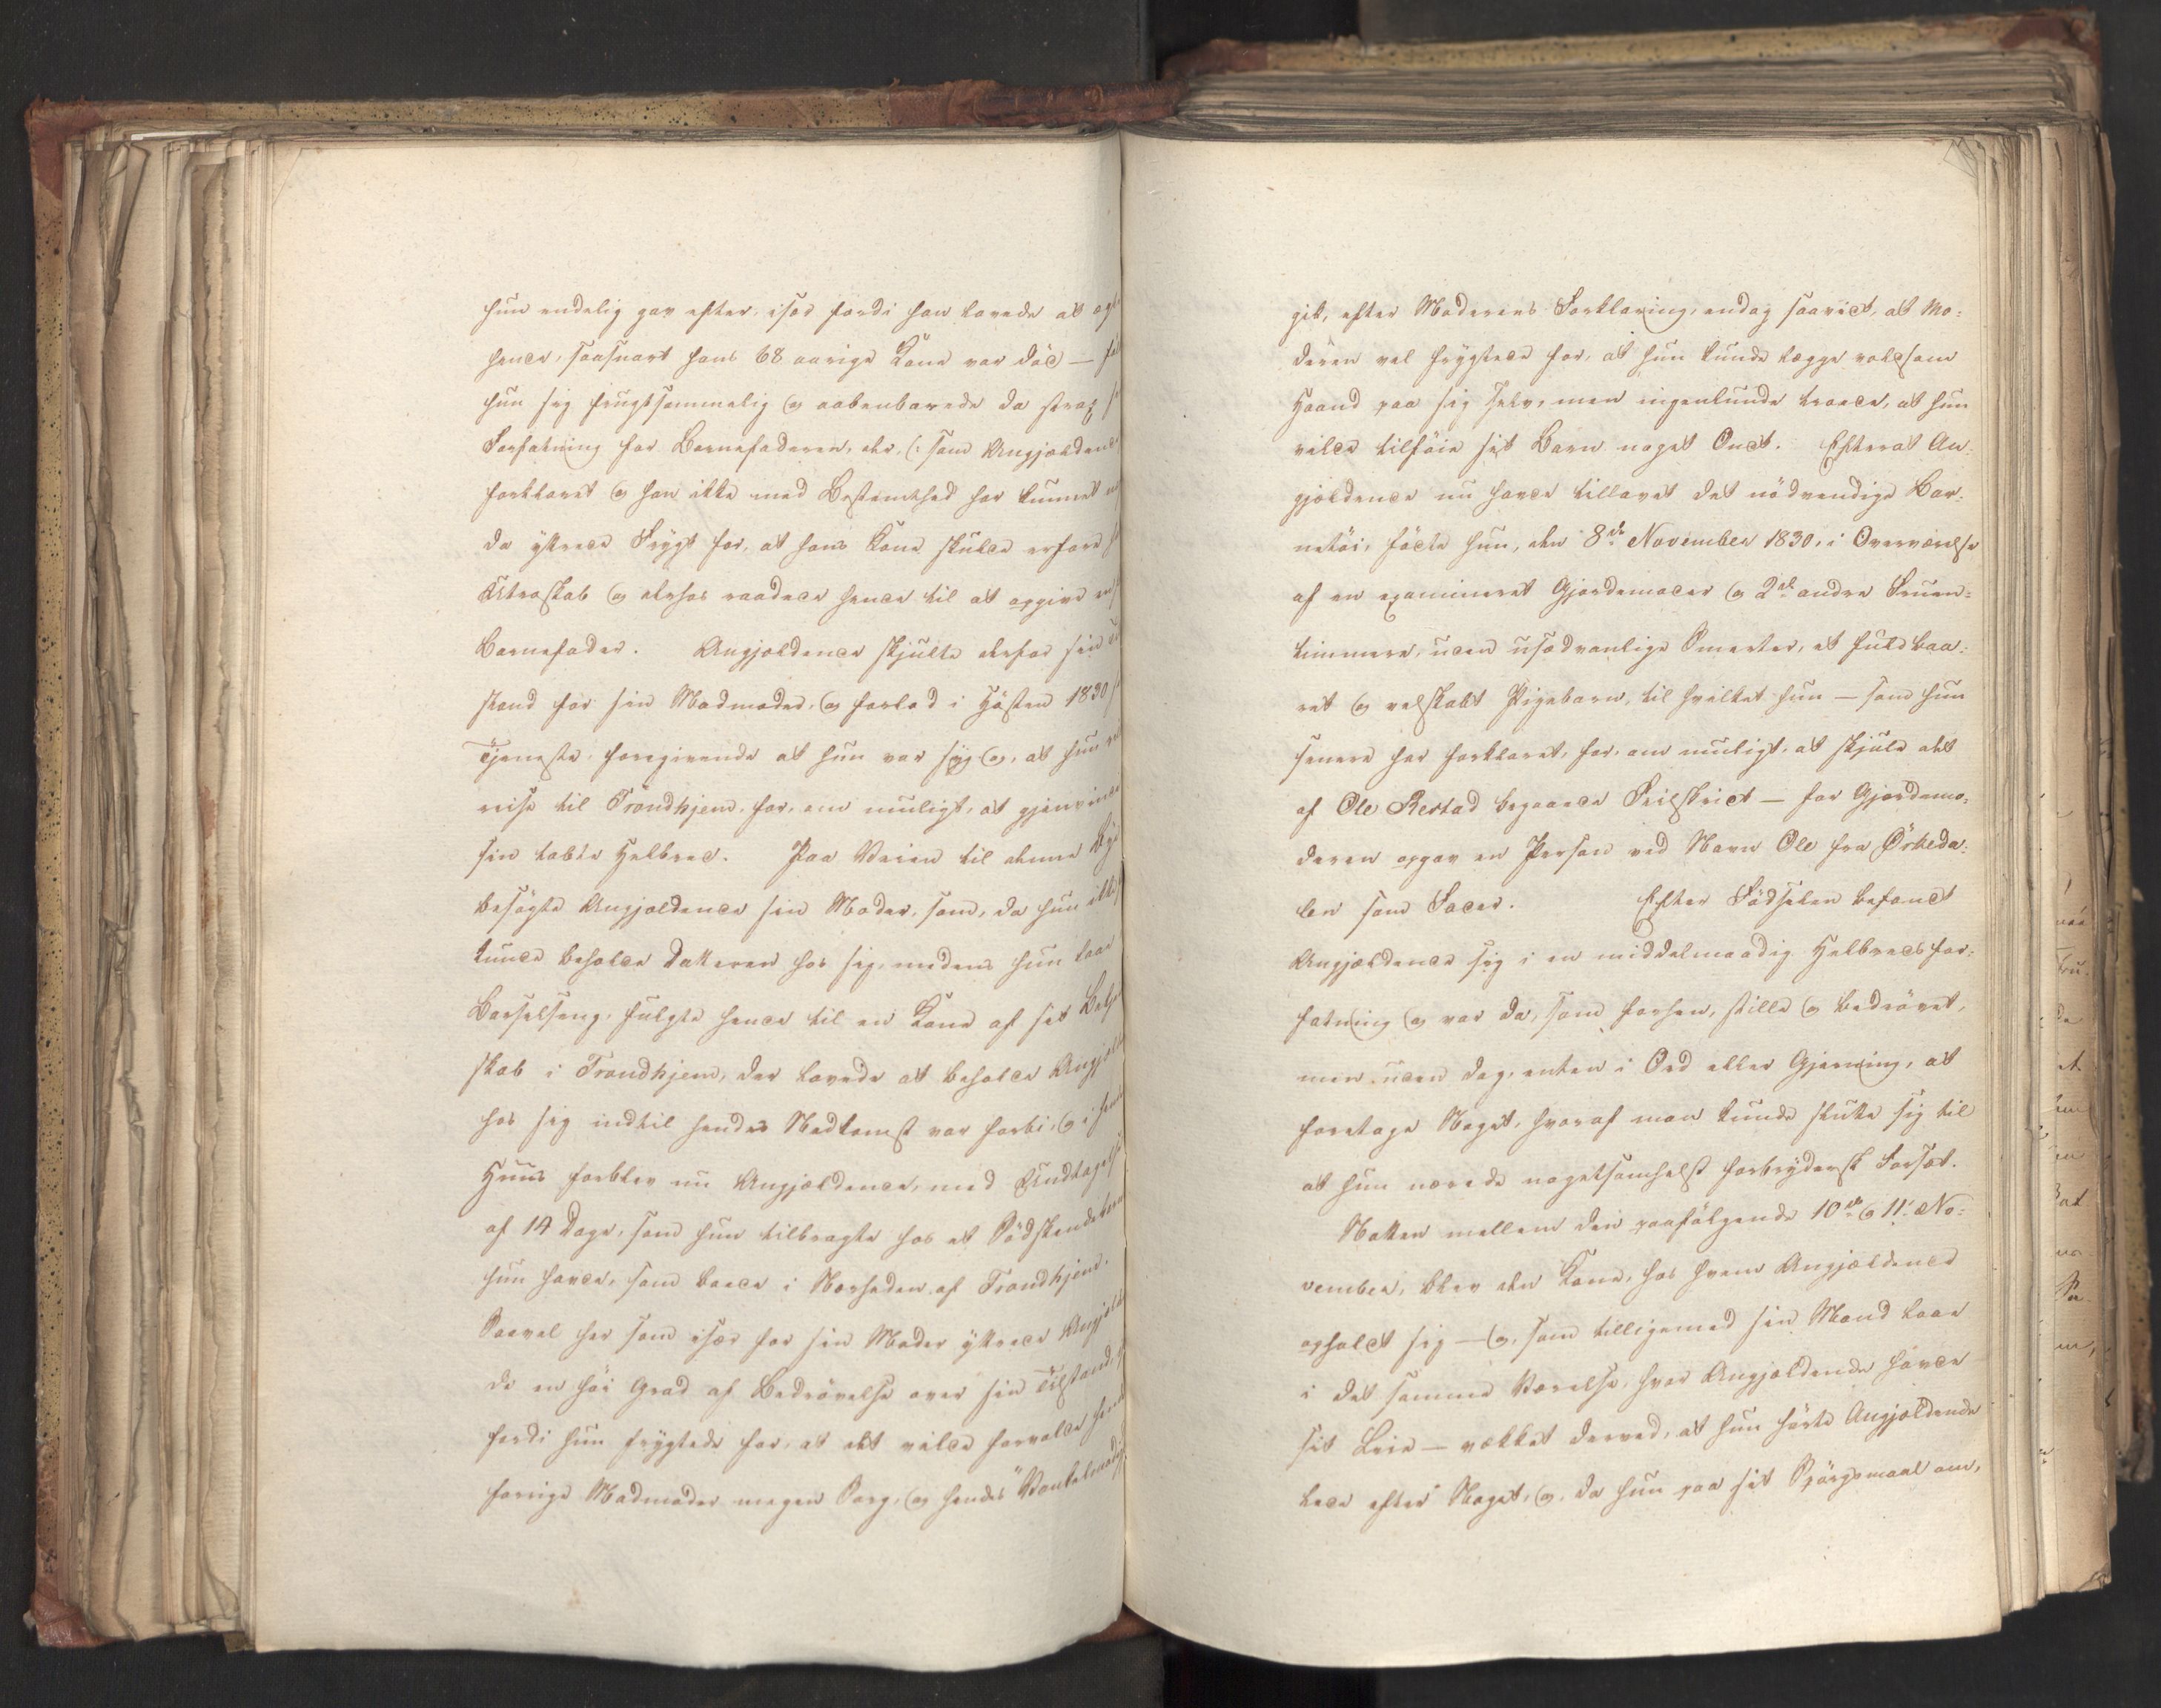 hun endelig gav efter, især fordi han lovede at ægte
hende, saasnart hans 68 aarige Kone var död — föl
hun sig frugtsommelig og aabenbarede da strax
Forfatning for Barnefaderen, der, (: som Angjældende
forklaret og han ikke med Bestemthed har kunnet
da yttrede Frygt for, at hans Kone skulde erfare
Utroskab og derhos raadede hende til at opgive en
Barnefader. Angjældende skjulte derfor sin
stand for sin Madmoder, og forlod i Hösten 1830
Tjeneste, foregivende at hun var syg og, at hun vil
reise til Trondhjem, for, om muligt, at gjenvinde
sin tabte Helbred. Paa Veien til denne Bye
besögte Angjældende sin Moder, som, da hun ikke
kunde beholde Datteren hos sig, medens hun laae
Barselseng, fulgte hende til en Kone af sit Bekjendt
skab i Trondhjem, der lovede at beholde Angjæld
hos sig indtil hendes Nedkomst var forbi, og i hendes
Huus forblev nu Angjældende, med Undtagelse
af 14 Dage, som hun tilbragte hos et Södskendebarn
hun havde, som boede i Nærheden af Trondhjem.
Saavel her som især for sin Moder yttrede Angjælden
de en höi Grad af Bedrövelse over sin Tilstand,
fordi hun frygtede for, at det vilde forvolde hendes
forrige Madmoder megen Sorg, og hendes Vankelmodig
gik, efter Moderens Forklaring, endog saavidt, at Mo-
deren vel frygtede for, at hun kunde lægge voldsom
Haand paa sig selv, men ingenlunde troede, at hun
vilde tilföie sit Barn noget Ondt. Efterat An-
gjældende nu havde tillavet det nödvendige Bar-
netöi, födte hun, den 8de November 1830, i Overværelse
af en examineret Gjordemoder og 2de andre Fruen-
timmere, uden usædvanlige Smerter, et fuldbaa-
ret og velskabt Pigebarn, til hvilket hun — som hun
senere har forklaret, for, om muligt, at skjule det
af Ole Restad begaaede Feilskridt — for Gjordemo-
deren opgav en Person ved Navn Ole fra Örkeda-
len som Fader. Efter Födselen befandt
Angjældende sig i en middelmaadig Helbredsfor-
fatning og var da, som forhen, stille og bedrövet,
men uden dog, enten i Ord eller Gjerning, at
foretage Noget, hvoraf man kunde slutte sig til
at hun nærede nogetsomhelst forbrydersk Forsæt.
Natten mellem den paafölgende 10de og 11te No-
vember, blev den Kone, hos hvem Angjældende
opholdt sig — og, som tilligemed sin Mand laae
i det samme Værelse, hvor Angjældende havde
sit Leie — vækket derved, at hun hörte Angjældende
lede efter Noget, og, da hun paa sit Spörgsmaal om,